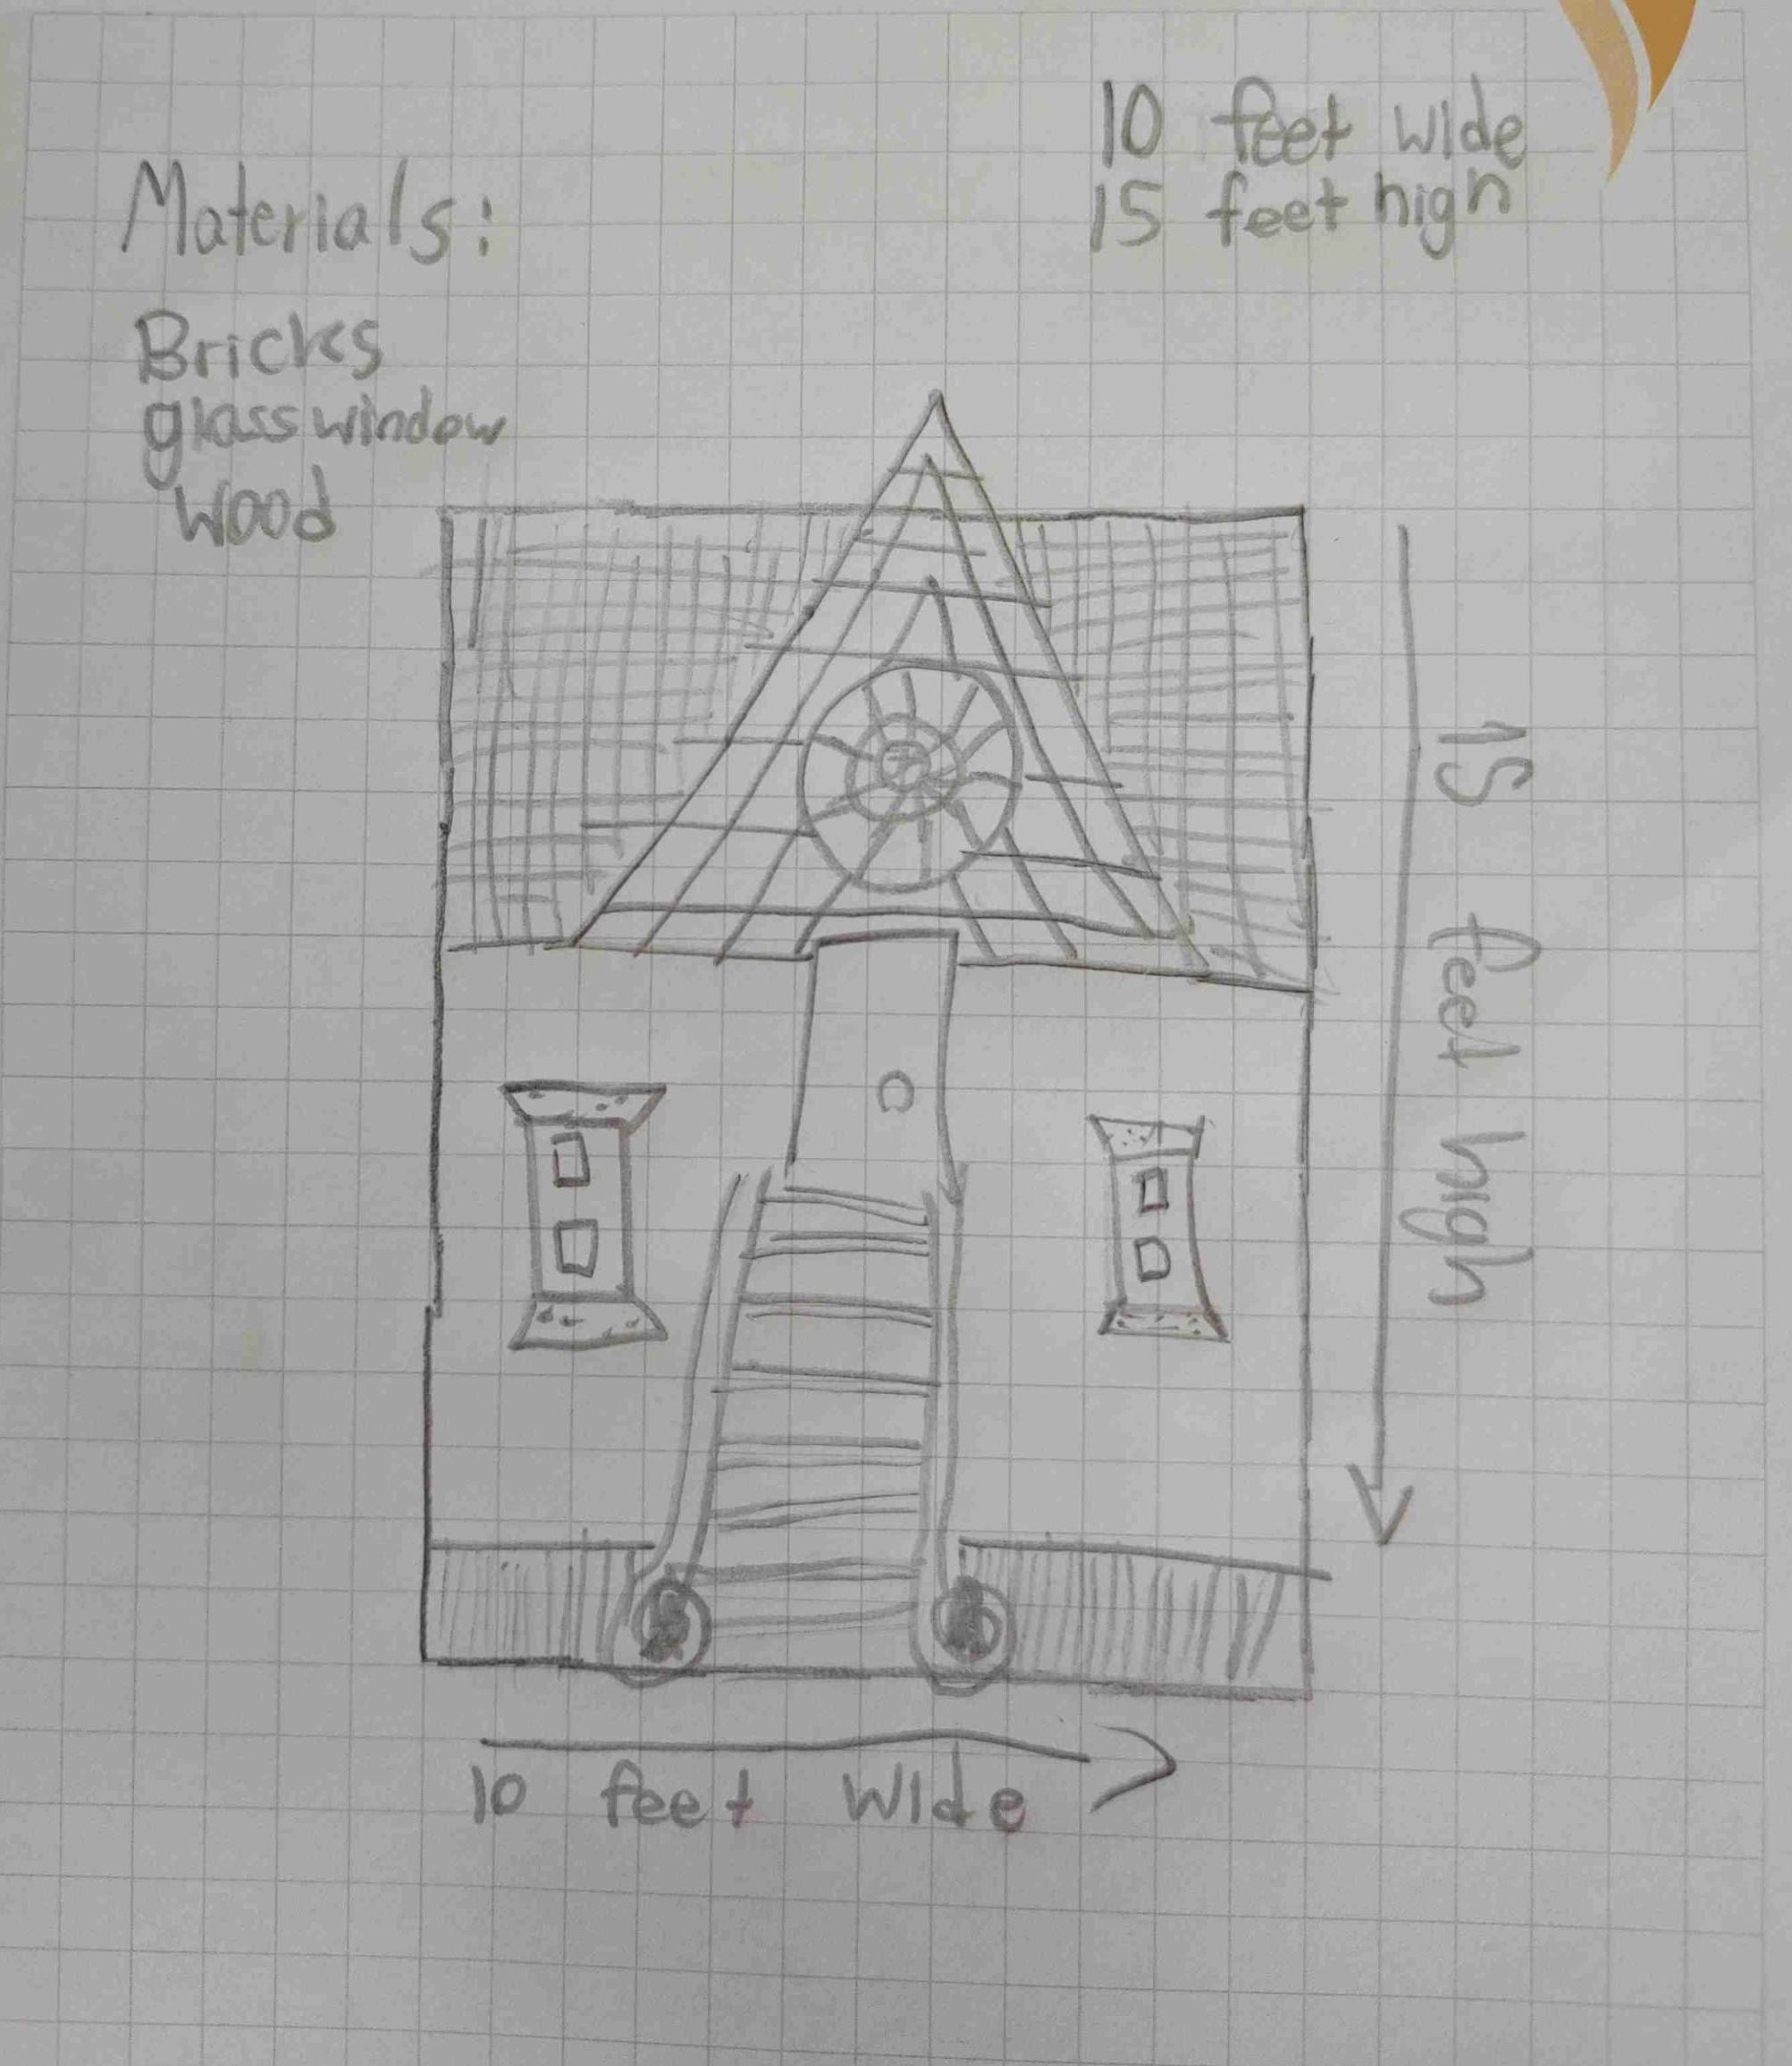 10 feet wide
15 feet high
Materials:
Bricks
glass window
Wood
15 feet high
10 feet wide